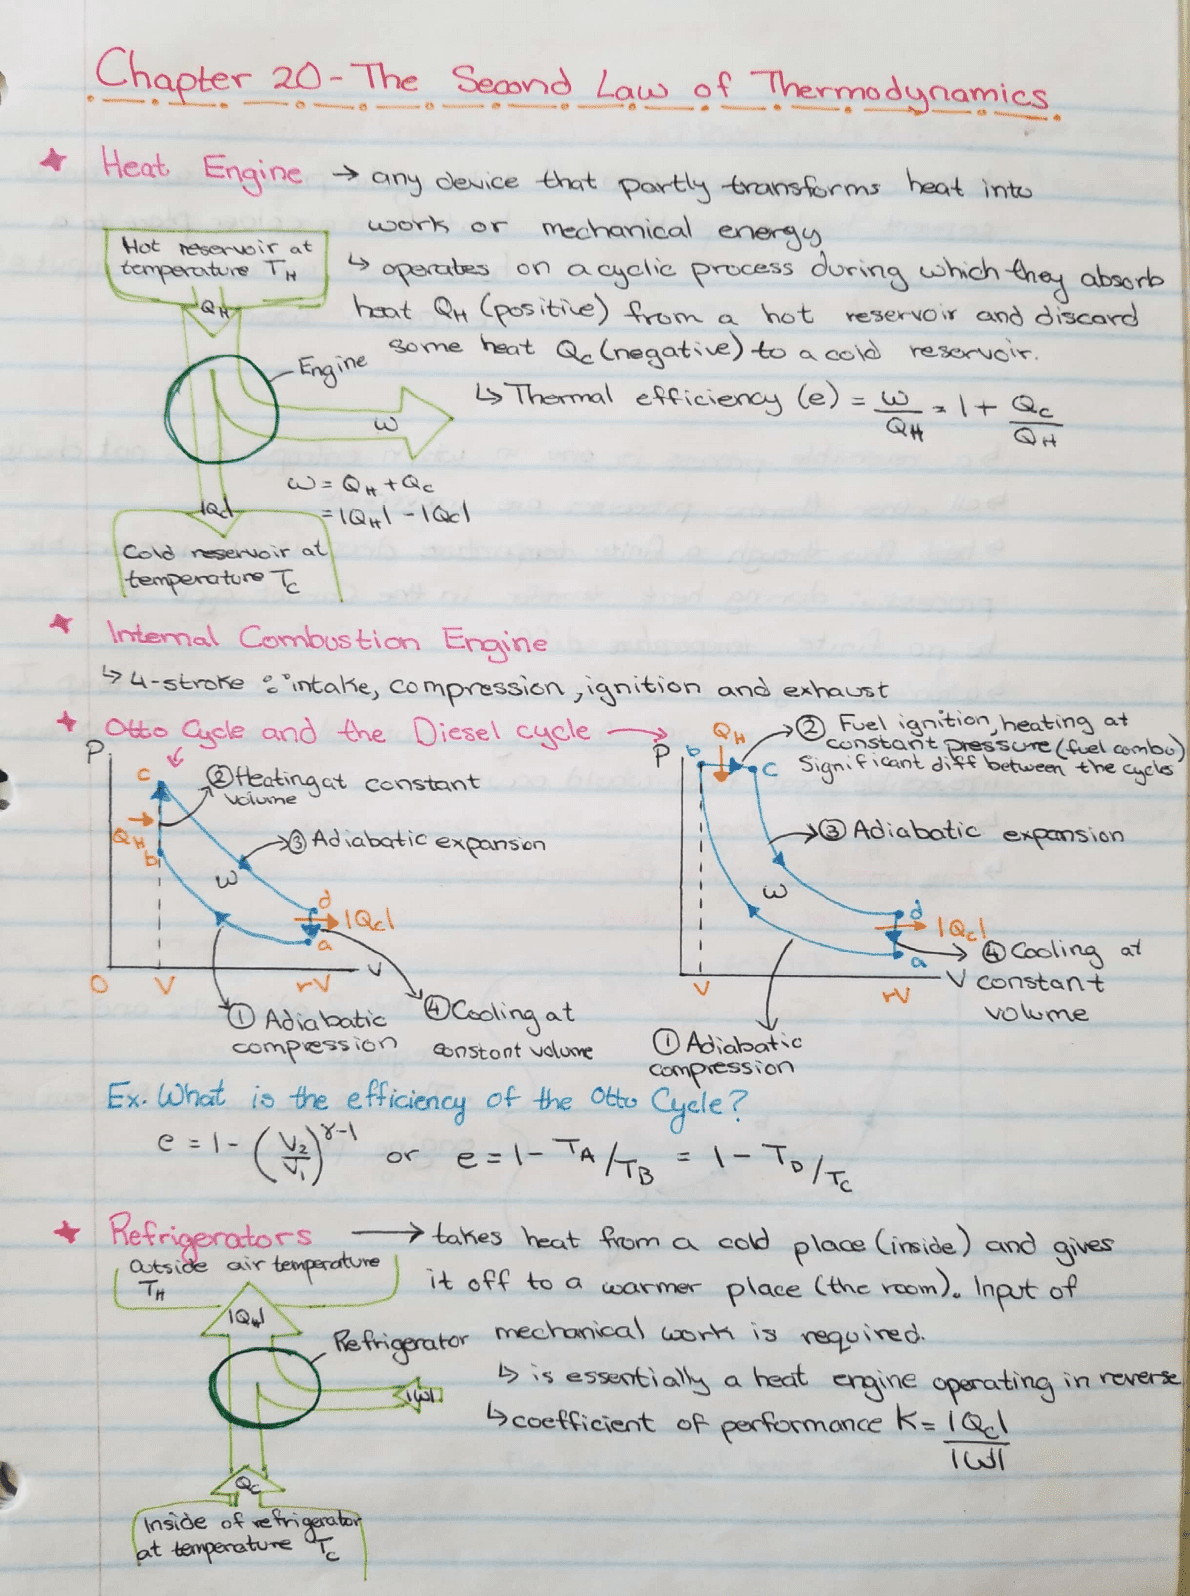 Chapter 20 - The Second Law of Thermodynamics
★ Heat Engine → any device that partly transforms heat into
work or mechanical energy
↳ operates on a cyclic process during which they absorb
heat QH (positive) from a hot reservoir and discard
some heat Qc (negative) to a cold reservoir.
↳ Thermal efficiency (e) = W/QH = 1 + Qc/QH
Hot reservoir at
temperature TH
QH
Engine
W
W = QH + Qc
= |QH| - |Qc|
|Qc|
Cold reservoir at
temperature Tc
★ Internal Combustion Engine
↳ 4-stroke : intake, compression, ignition and exhaust
★ Otto Cycle and the Diesel cycle →
P
c
② Heating at constant
volume
QH
b
③ Adiabatic expansion
W
d
|Qc|
a
O V rV V
① Adiabatic
compression
④ Cooling at
constant volume
P b QH c
② Fuel ignition, heating at
constant pressure (fuel combu)
Significant diff between the cycles
③ Adiabatic expansion
W
d
|Qc|
a
④ Cooling at
constant
volume
V rV V
① Adiabatic
compression
Ex. What is the efficiency of the Otto Cycle?
e = 1 - (V2/V1)^γ-1 or e = 1 - TA/TB = 1 - TD/TC
★ Refrigerators → takes heat from a cold place (inside) and gives
it off to a warmer place (the room). Input of
mechanical work is required.
↳ is essentially a heat engine operating in reverse
↳ coefficient of performance K = |Qc|/|W|
Outside air temperature
TH
|QH|
Refrigerator
|W|
Qc
Inside of refrigerator
at temperature Tc